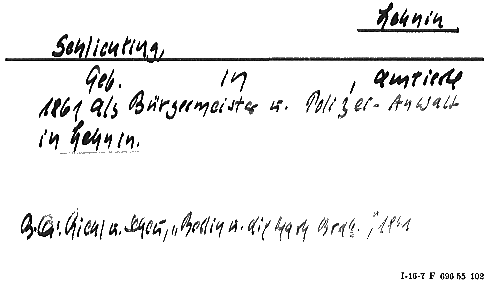 Lehnin
Schlichting,
Geb. in , amtierte
1861 als Bürgermeister u. Polizei-Anwalt
in Lehnin.
Riehl u. Scheu, „Berlin u. die Mark Brdbg.", 1861
I-16-7 F 696 55 102